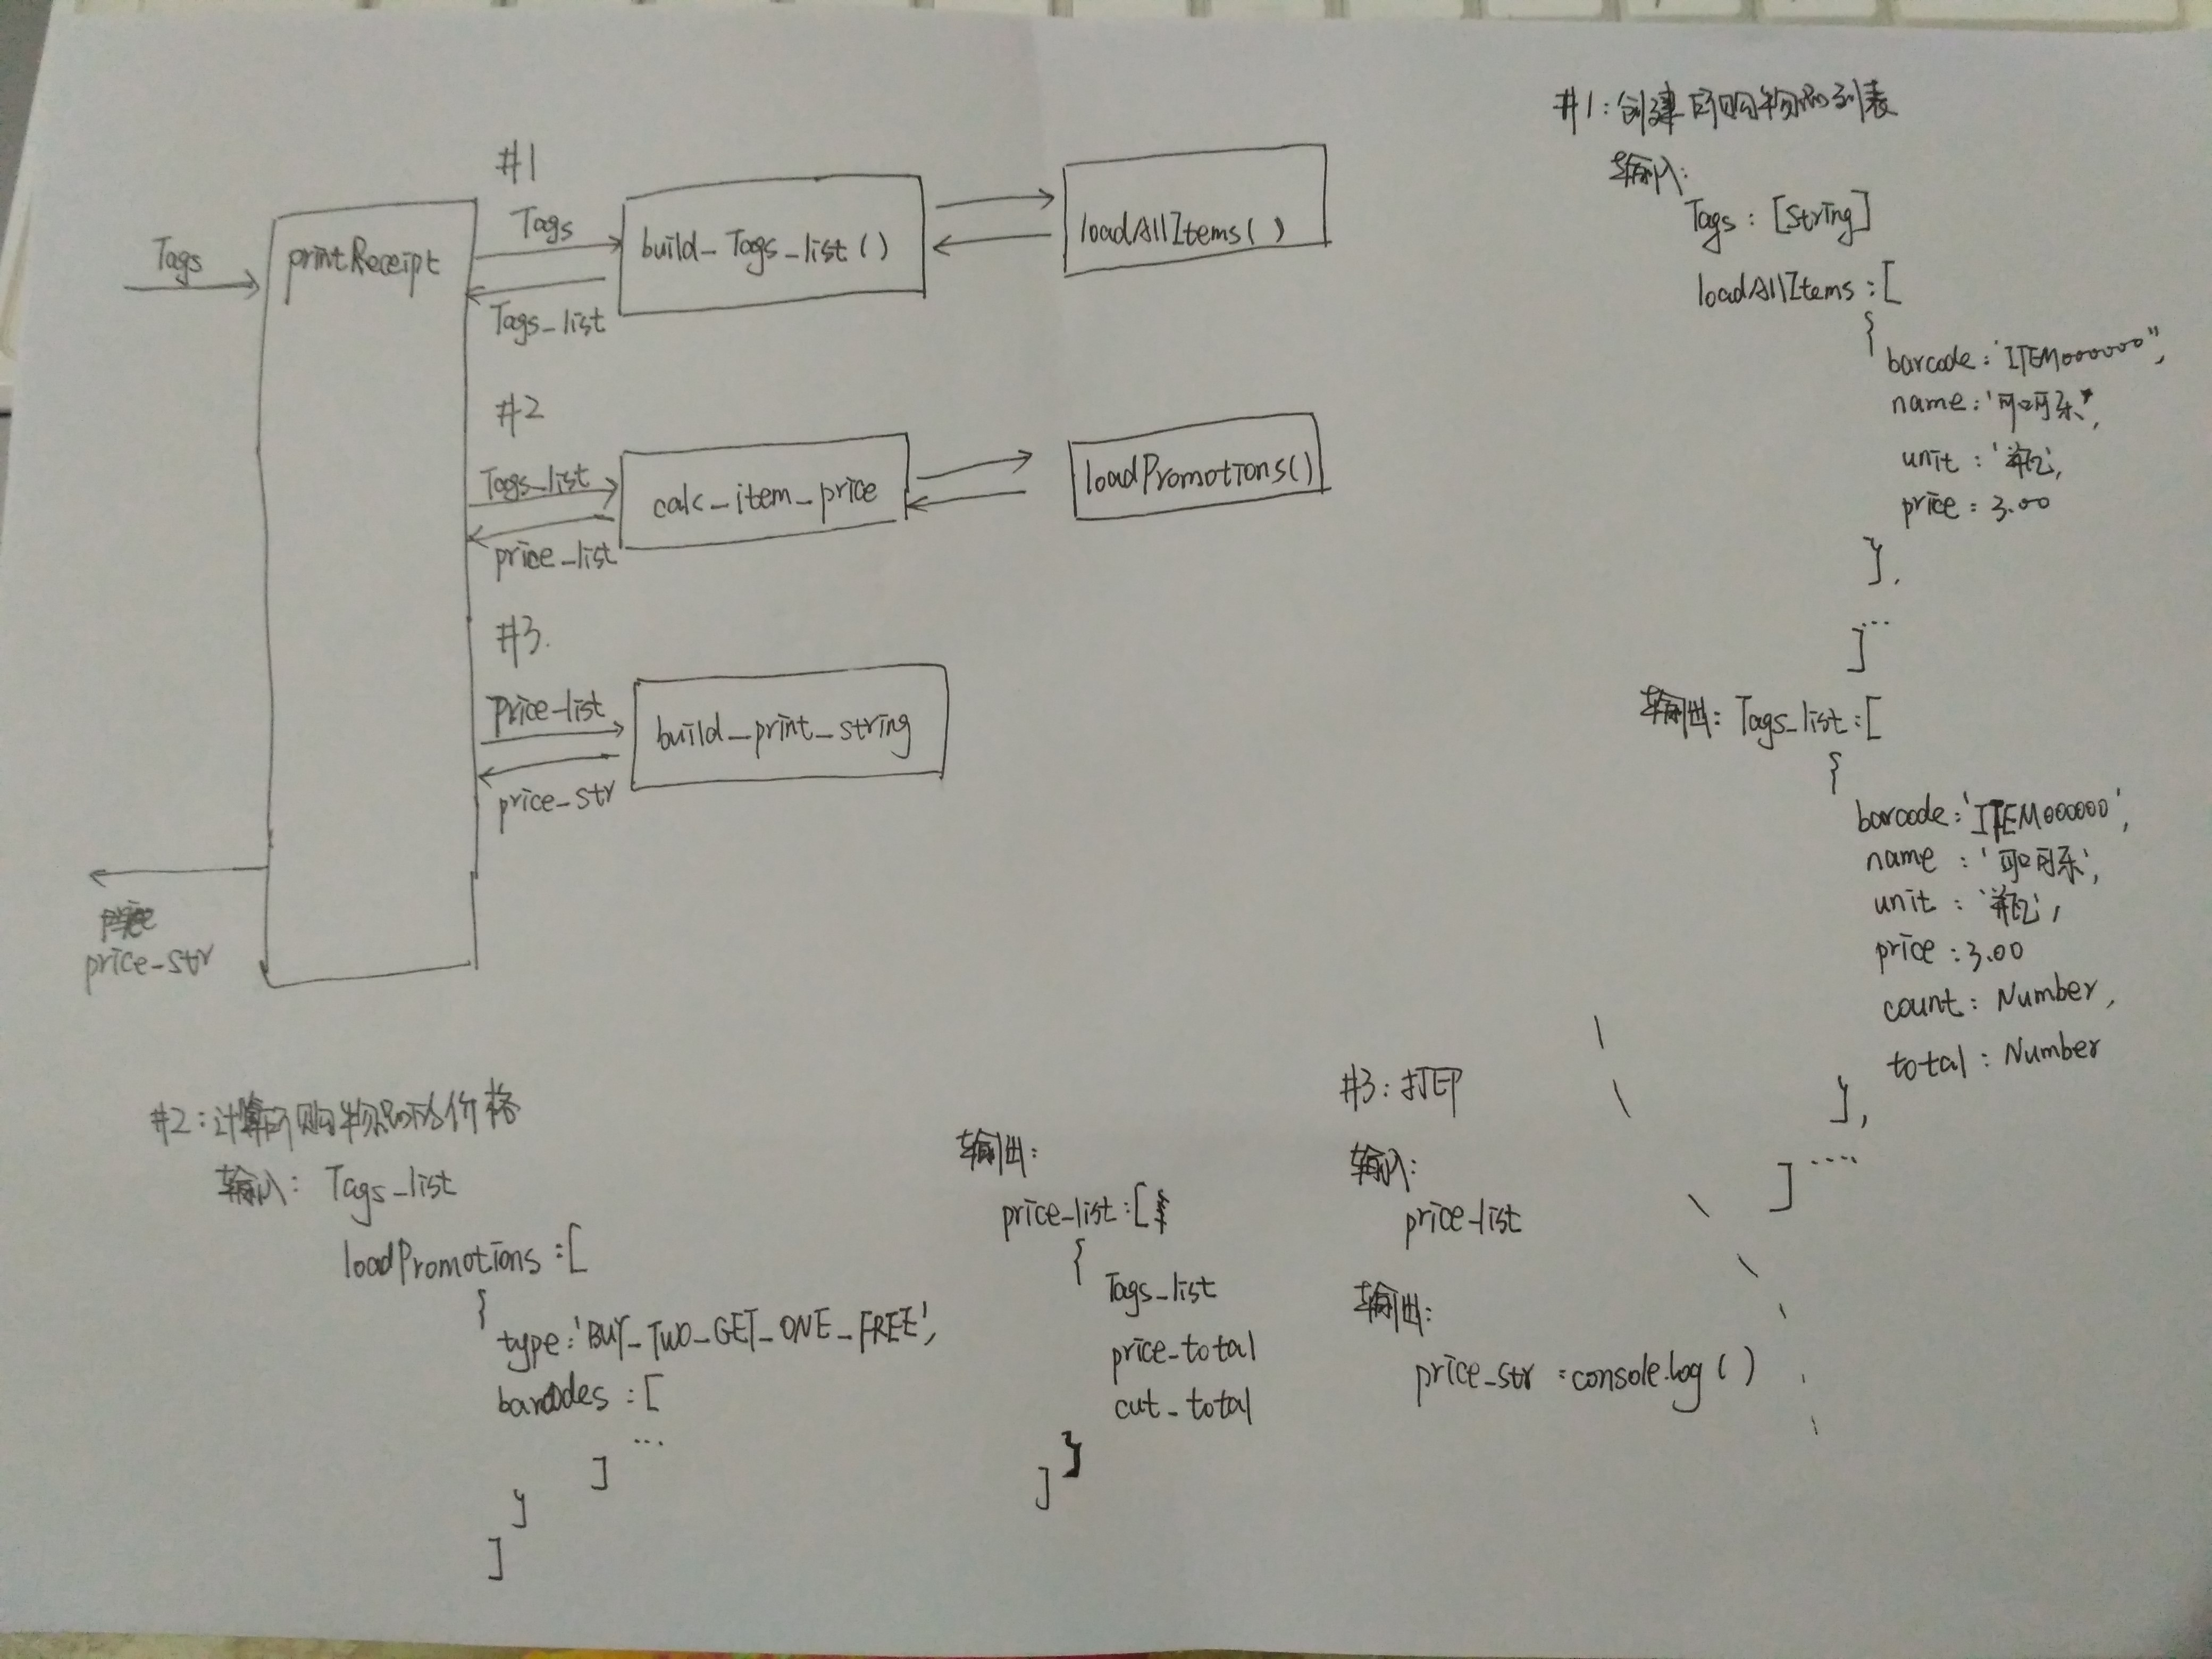 #1
Tags
printReceipt
Tags
build_Tags_list()
loadAllItems()
Tags_list
#2
Tags_list
calc_item_price
loadPromotions()
price_list
#3.
Price-list
build_print_string
price_str
price_str
#1:创建所购物品列表
输入:
Tags : [String]
loadAllItems : [
{
barcode: 'ITEM000000",
name: '可口可乐',
unit : '瓶',
price : 3.00
},
...
]
输出: Tags_list : [
{
barcode: 'ITEM000000',
name : '可口可乐',
unit : '瓶',
price : 3.00
count : Number,
total : Number
},
....
]
#2:计算所购物品的价格
输入: Tags_list
loadPromotions : [
{
type: 'BUY_TWO_GET_ONE_FREE',
barcodes : [
...
]
}
]
输出:
price_list : [
{
Tags_list
price-total
cut_total
}
]
#3: 打印
输入:
price-list
输出:
price_str : console.log()